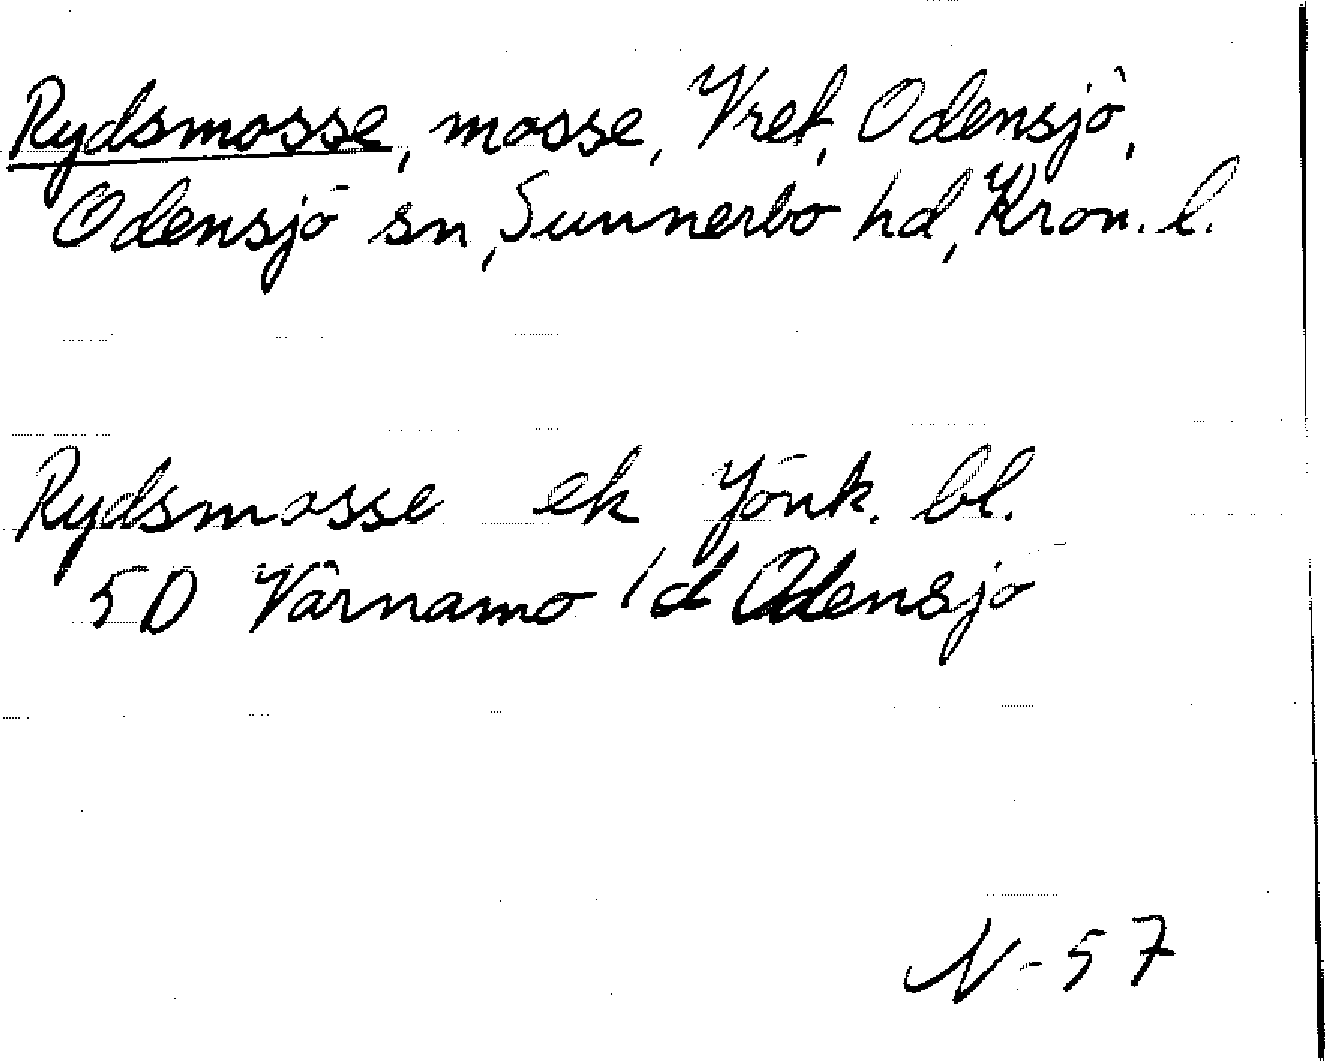 Rydsmosse, mosse, Vret, Odensjö,
Odensjö sn, Sunnerbo hd, Kron. l.
Rydsmosse ek Jönk. bl.
5D Värnamo 1d Odensjö
N-57